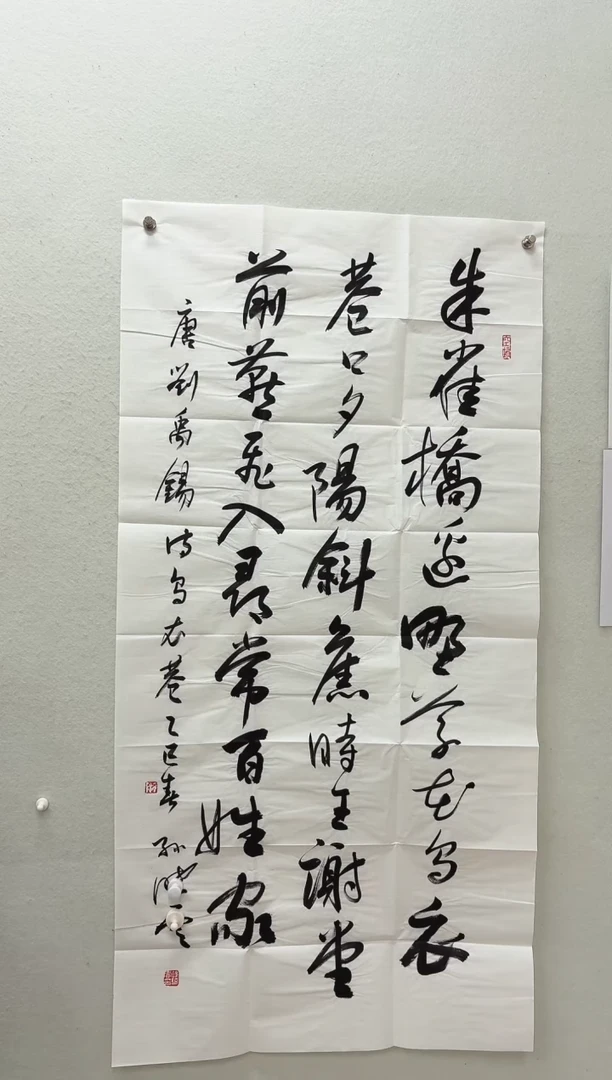 朱雀橋邊野草花烏衣
巷口夕陽斜舊時王謝堂
前燕飛入尋常百姓家
唐劉禹錫詩烏衣巷乙巳春 孫曉雲